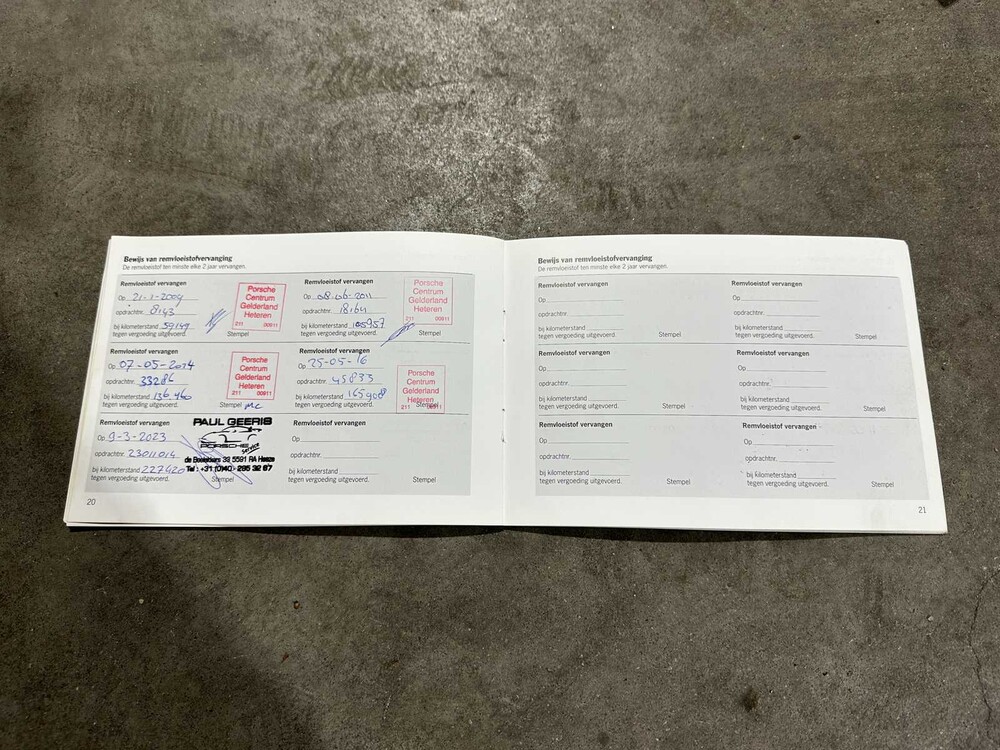 Bewijs van remvloeistofvervanging
De remvloeistof ten minste elke 2 jaar vervangen.
Remvloeistof vervangen
Op 21-1-2009
opdrachtnr. 0143
bij kilometerstand 59149
tegen vergoeding uitgevoerd.
Stempel
Porsche
Centrum
Gelderland
Heteren
211 00911
Remvloeistof vervangen
Op 08-06-2011
opdrachtnr. 18164
bij kilometerstand 105957
tegen vergoeding uitgevoerd.
Stempel
Porsche
Centrum
Gelderland
Heteren
211 00911
Remvloeistof vervangen
Op 07-05-2014
opdrachtnr. 33286
bij kilometerstand 136.460
tegen vergoeding uitgevoerd.
Stempel
Porsche
Centrum
Gelderland
Heteren
211 00911
Remvloeistof vervangen
Op 25-05-16
opdrachtnr. 45833
bij kilometerstand 165908
tegen vergoeding uitgevoerd.
Stempel
Porsche
Centrum
Gelderland
Heteren
211 00911
Remvloeistof vervangen
Op 9-3-2023
opdrachtnr. 23011014
bij kilometerstand 227420
tegen vergoeding uitgevoerd.
Stempel
PAUL GEERIS
PORSCHE service
39 5591 RA Heeze
Tel: +31 (0)40 - 295 32 67
Remvloeistof vervangen
Op
opdrachtnr.
bij kilometerstand
tegen vergoeding uitgevoerd.
Stempel
20
Bewijs van remvloeistofvervanging
De remvloeistof ten minste elke 2 jaar vervangen.
Remvloeistof vervangen
Op
opdrachtnr.
bij kilometerstand
tegen vergoeding uitgevoerd.
Stempel
Remvloeistof vervangen
Op
opdrachtnr.
bij kilometerstand
tegen vergoeding uitgevoerd.
Stempel
Remvloeistof vervangen
Op
opdrachtnr.
bij kilometerstand
tegen vergoeding uitgevoerd.
Stempel
Remvloeistof vervangen
Op
opdrachtnr.
bij kilometerstand
tegen vergoeding uitgevoerd.
Stempel
Remvloeistof vervangen
Op
opdrachtnr.
bij kilometerstand
tegen vergoeding uitgevoerd.
Stempel
Remvloeistof vervangen
Op
opdrachtnr.
bij kilometerstand
tegen vergoeding uitgevoerd.
Stempel
21